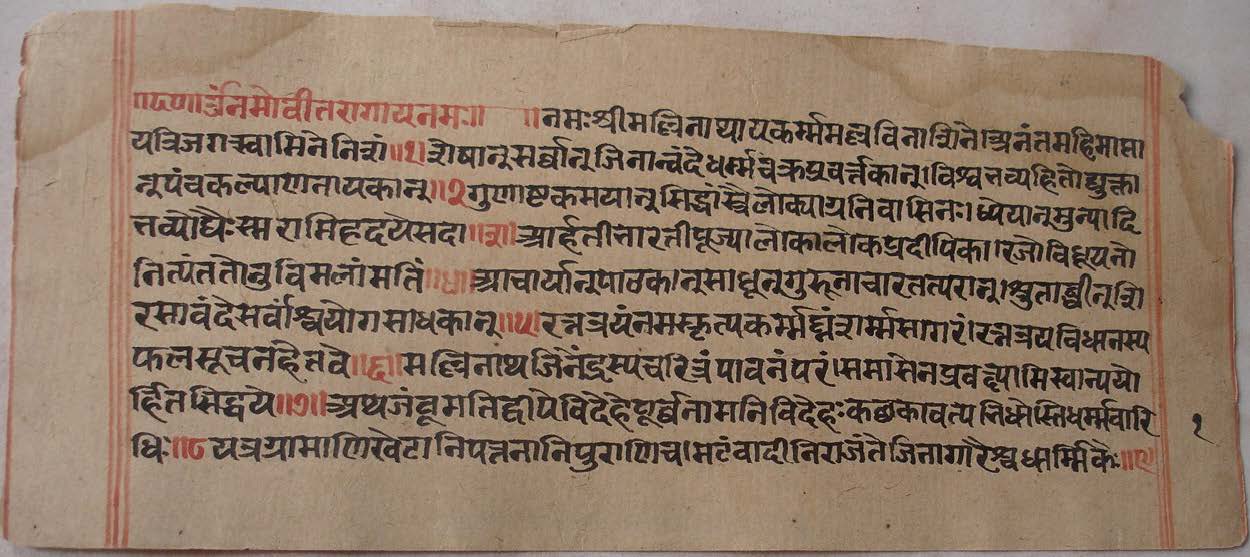 ॥ए६०॥ उंनमोवीतरागायनमः॥ ॥नमःश्रीमल्लिनाथायकर्म्ममल्लविनाशिने।अनंतमहिमाप्ता
यत्रिजगत्स्वामिनेनिशं॥१॥शेषान्सर्वान्जिनान्वंदेधर्म्मचक्रप्रवर्त्तकान्।विश्वभव्यहितोद्युक्ता
न्पंचकल्याणनायकान्॥२गुणाष्टकमयान्सिद्धांस्त्रैलोक्याग्रनिवासिनः।ध्येयान्मुन्यादि
भव्यौघैःस्मरामिहृदयेसदा॥३॥आर्हतीभारतीपूज्यालोकालोकप्रदीपिका।रजोविधूयनो
नित्यंतनोतुविमलांमतिं॥४॥आचार्यान्पाठकान्साधून्गुरूनाचारतत्परान्।श्रुताब्धीन्शि
रसावंदेसर्वांश्चयोगसाधकान्॥५॥रत्नत्रयंनमस्कृत्यकर्म्मघ्नंशर्म्मसागरं।रत्नत्रयविधानस्य
फलसूचनहेतवे॥६॥मल्लिनाथजिनेंद्रस्यचरित्रंपावनंपरं।समासेनप्रवक्ष्यामिस्वान्ययो
र्हितसिद्धये॥७॥अथजंबूमतिद्वीपेविदेहेपूर्वनामनिविदेहःकछकावत्यभिधोस्तिधर्म्मवारि
धिः॥८यत्रग्रामाणिखेटानिपत्तनानिपुराणिच।मटंबादीनिराजंतेजिनागारैश्चधार्म्मिकैः॥९
१